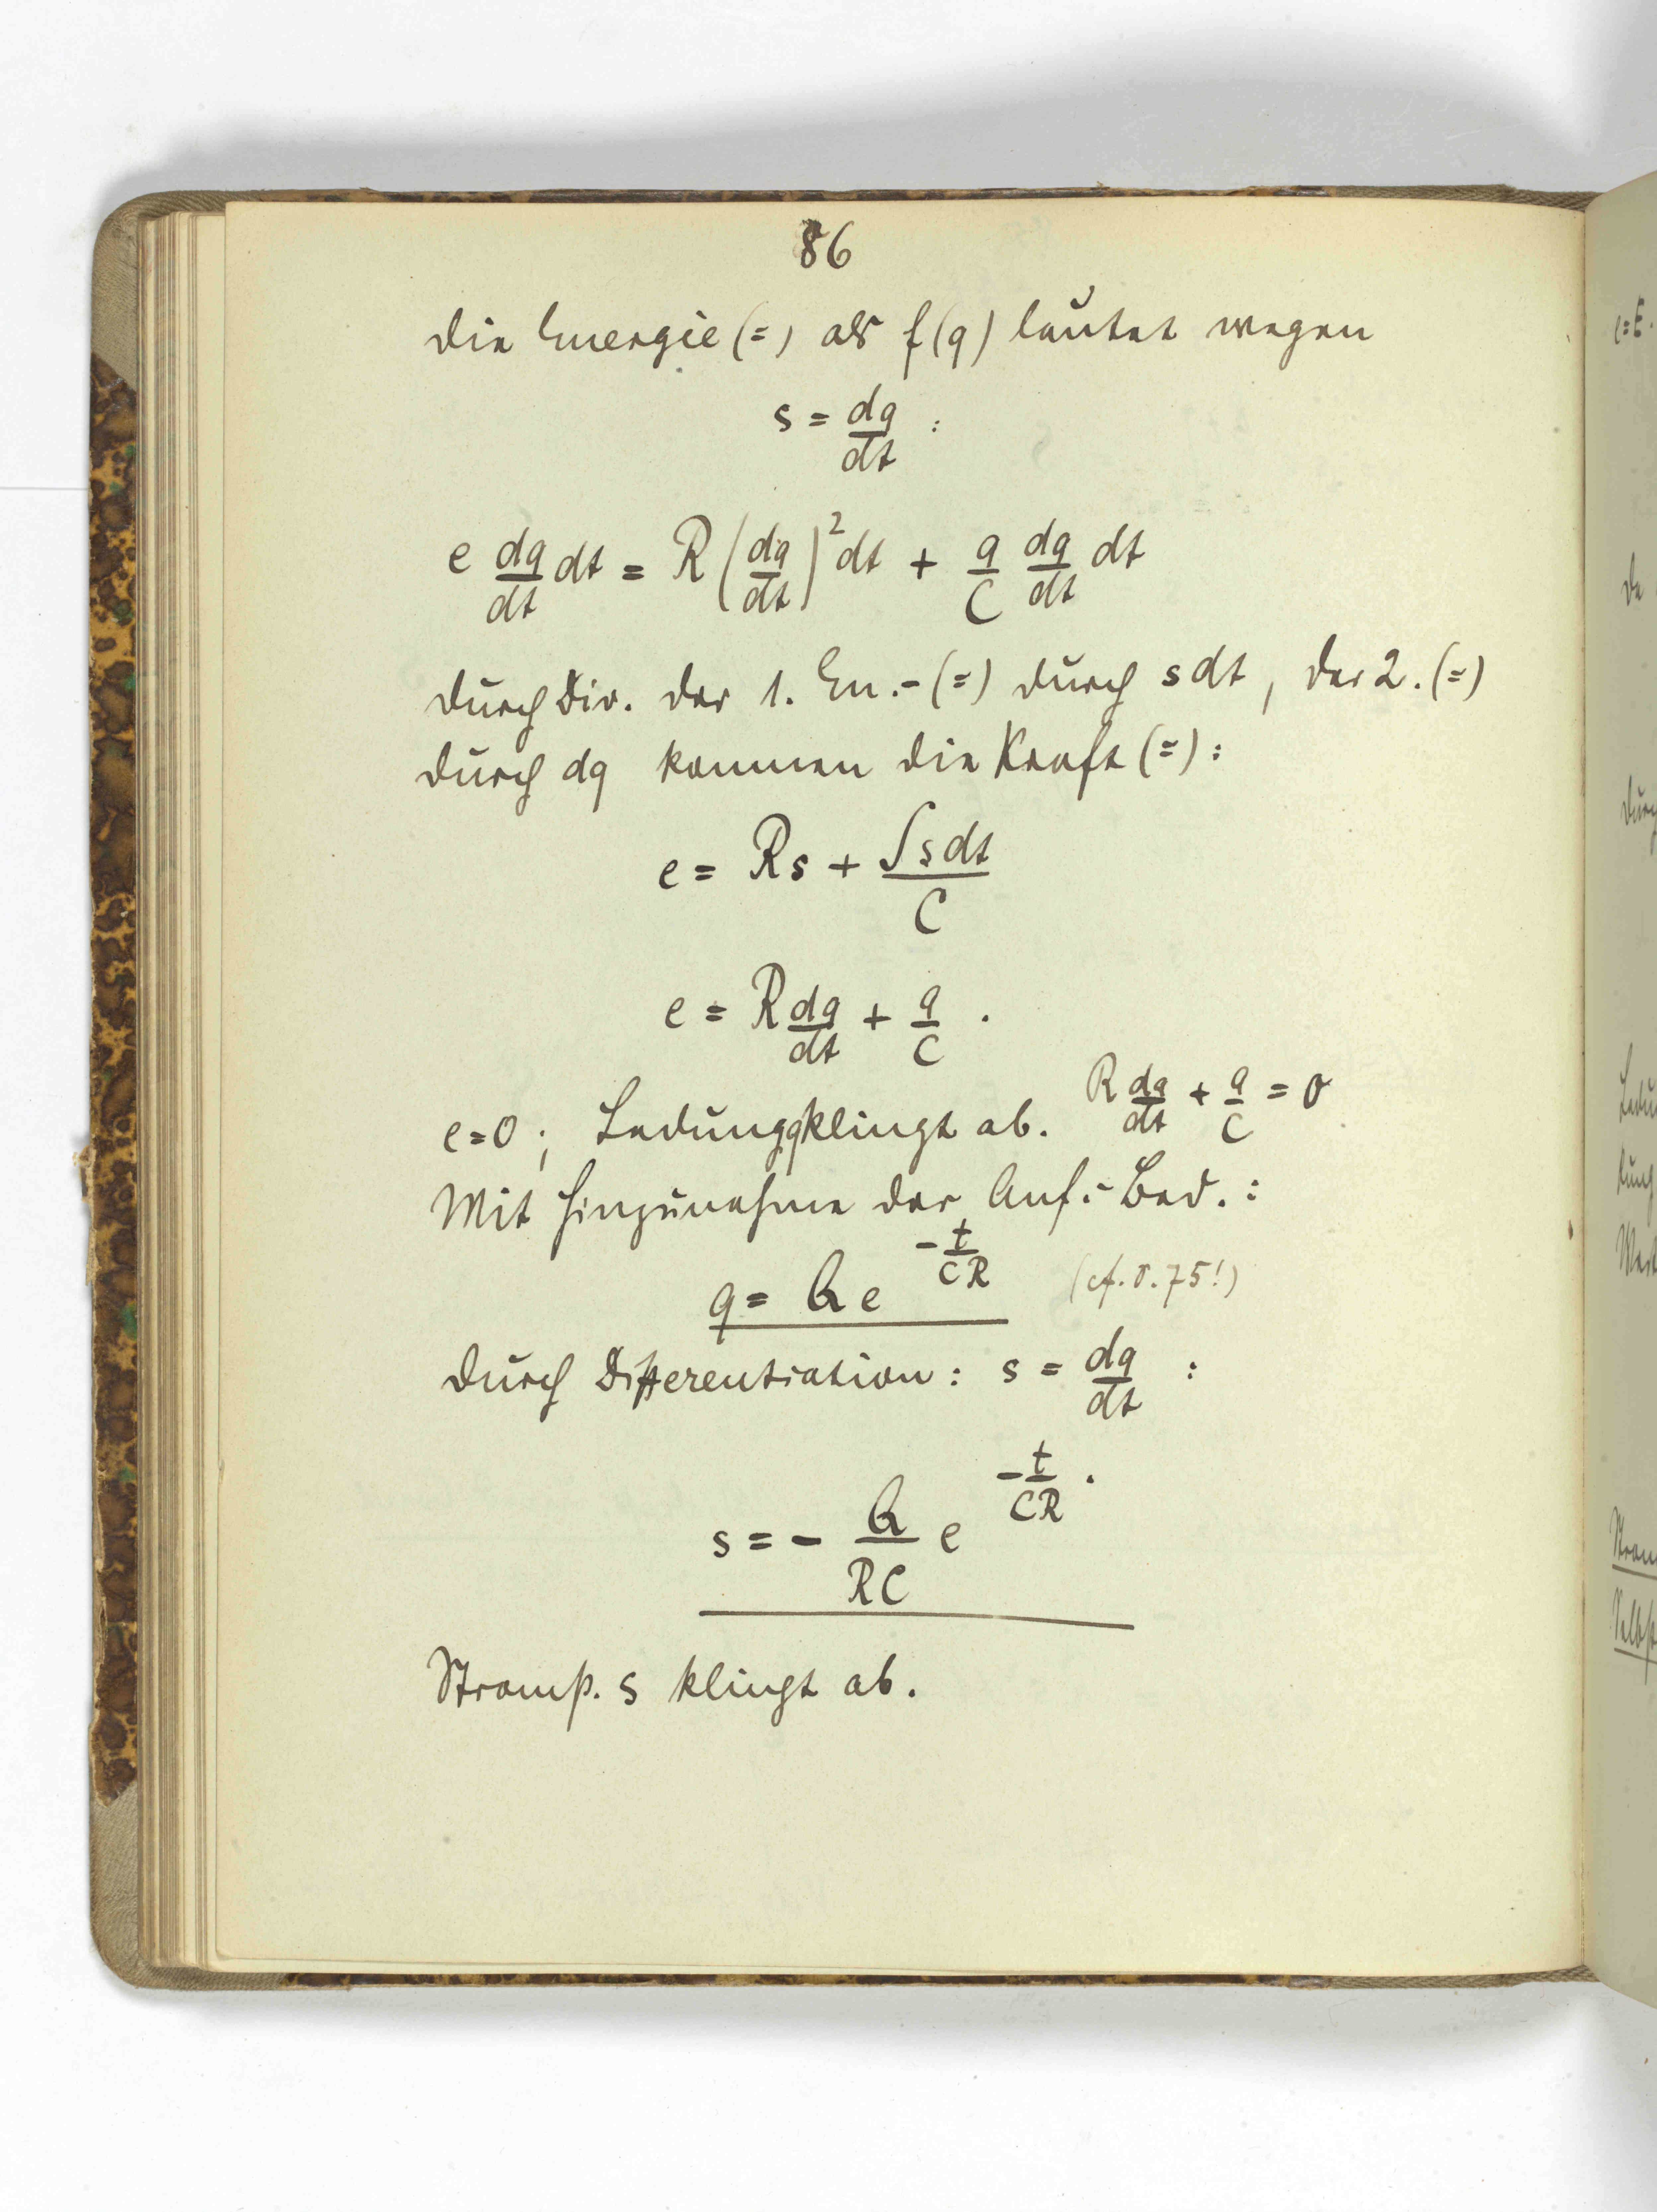 86
die Energie (=) als f(q) lautet wegen
s = dq/dt :
e dq/dt dt = R (dq/dt)² dt + q/C dq/dt dt
durch Div. der 1. En.-(=) durch s dt, der 2. (=)
durch dq kommen die Kraft (=):
e = Rs + ∫s dt/C
e = R dq/dt + q/C .
e=0; Ladung q klingt ab. R dq/dt + q/C = 0
Mit Hinzunahme der Anf.-Bed.:
q = Q e^(-t/CR) (cf. S. 75!)
durch Differentiation: s = dq/dt :
s = - Q/RC e^(-t/CR) .
Stromst. s klingt ab.